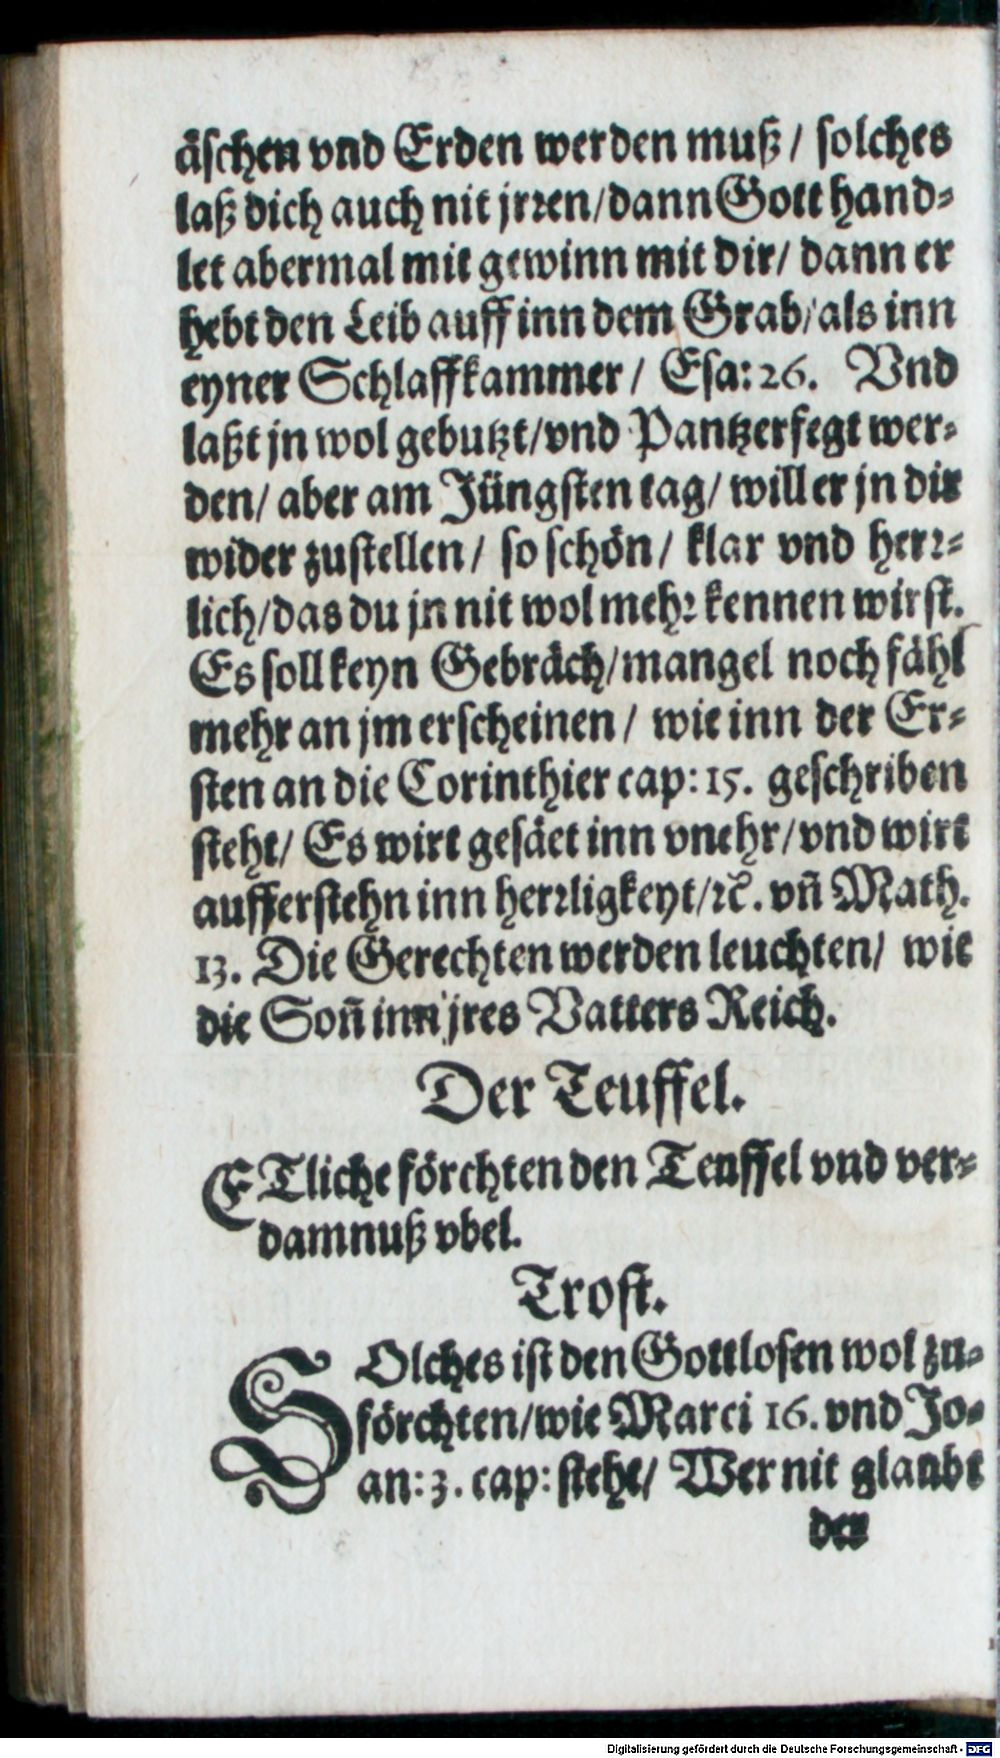 äschen vnd Erden werden muß / solches
laß dich auch nit jrren/dann Gott hand⸗
let abermal mit gewinn mit dir/ dann er
hebt den Leib auff inn dem Grab/als inn
eyner Schlaffkammer / Esa: 26. Vnd
laßt jn wol gebutzt/vnd Pantzerfegt wer⸗
den/ aber am Jüngsten tag/ will er jn dir
wider zustellen/ so schön/ klar vnd herr⸗
lich/das du jn nit wol mehr kennen wirst.
Es soll keyn Gebräch/mangel noch fähl
mehr an jm erscheinen / wie inn der Er⸗
sten an die Corinthier cap: 15. geschriben
steht/ Es wirt gesäet inn vnehr/vnd wirt
aufferstehn inn herrligkeyt/ꝛc̃. vñ Math.
13. Die Gerechten werden leuchten/ wie
die Soñ inn jres Vatters Reich.
Der Teuffel.
ETliche förchten den Teuffel vnd ver⸗
damnuß vbel.
Trost.
SOlches ist den Gottlosen wol zu⸗
förchten/wie Marci 16. vnd Jo⸗
an: 3. cap: steht/ Wer nit glaubt
den
Digitalisierung gefördert durch die Deutsche Forschungsgemeinschaft - DFG